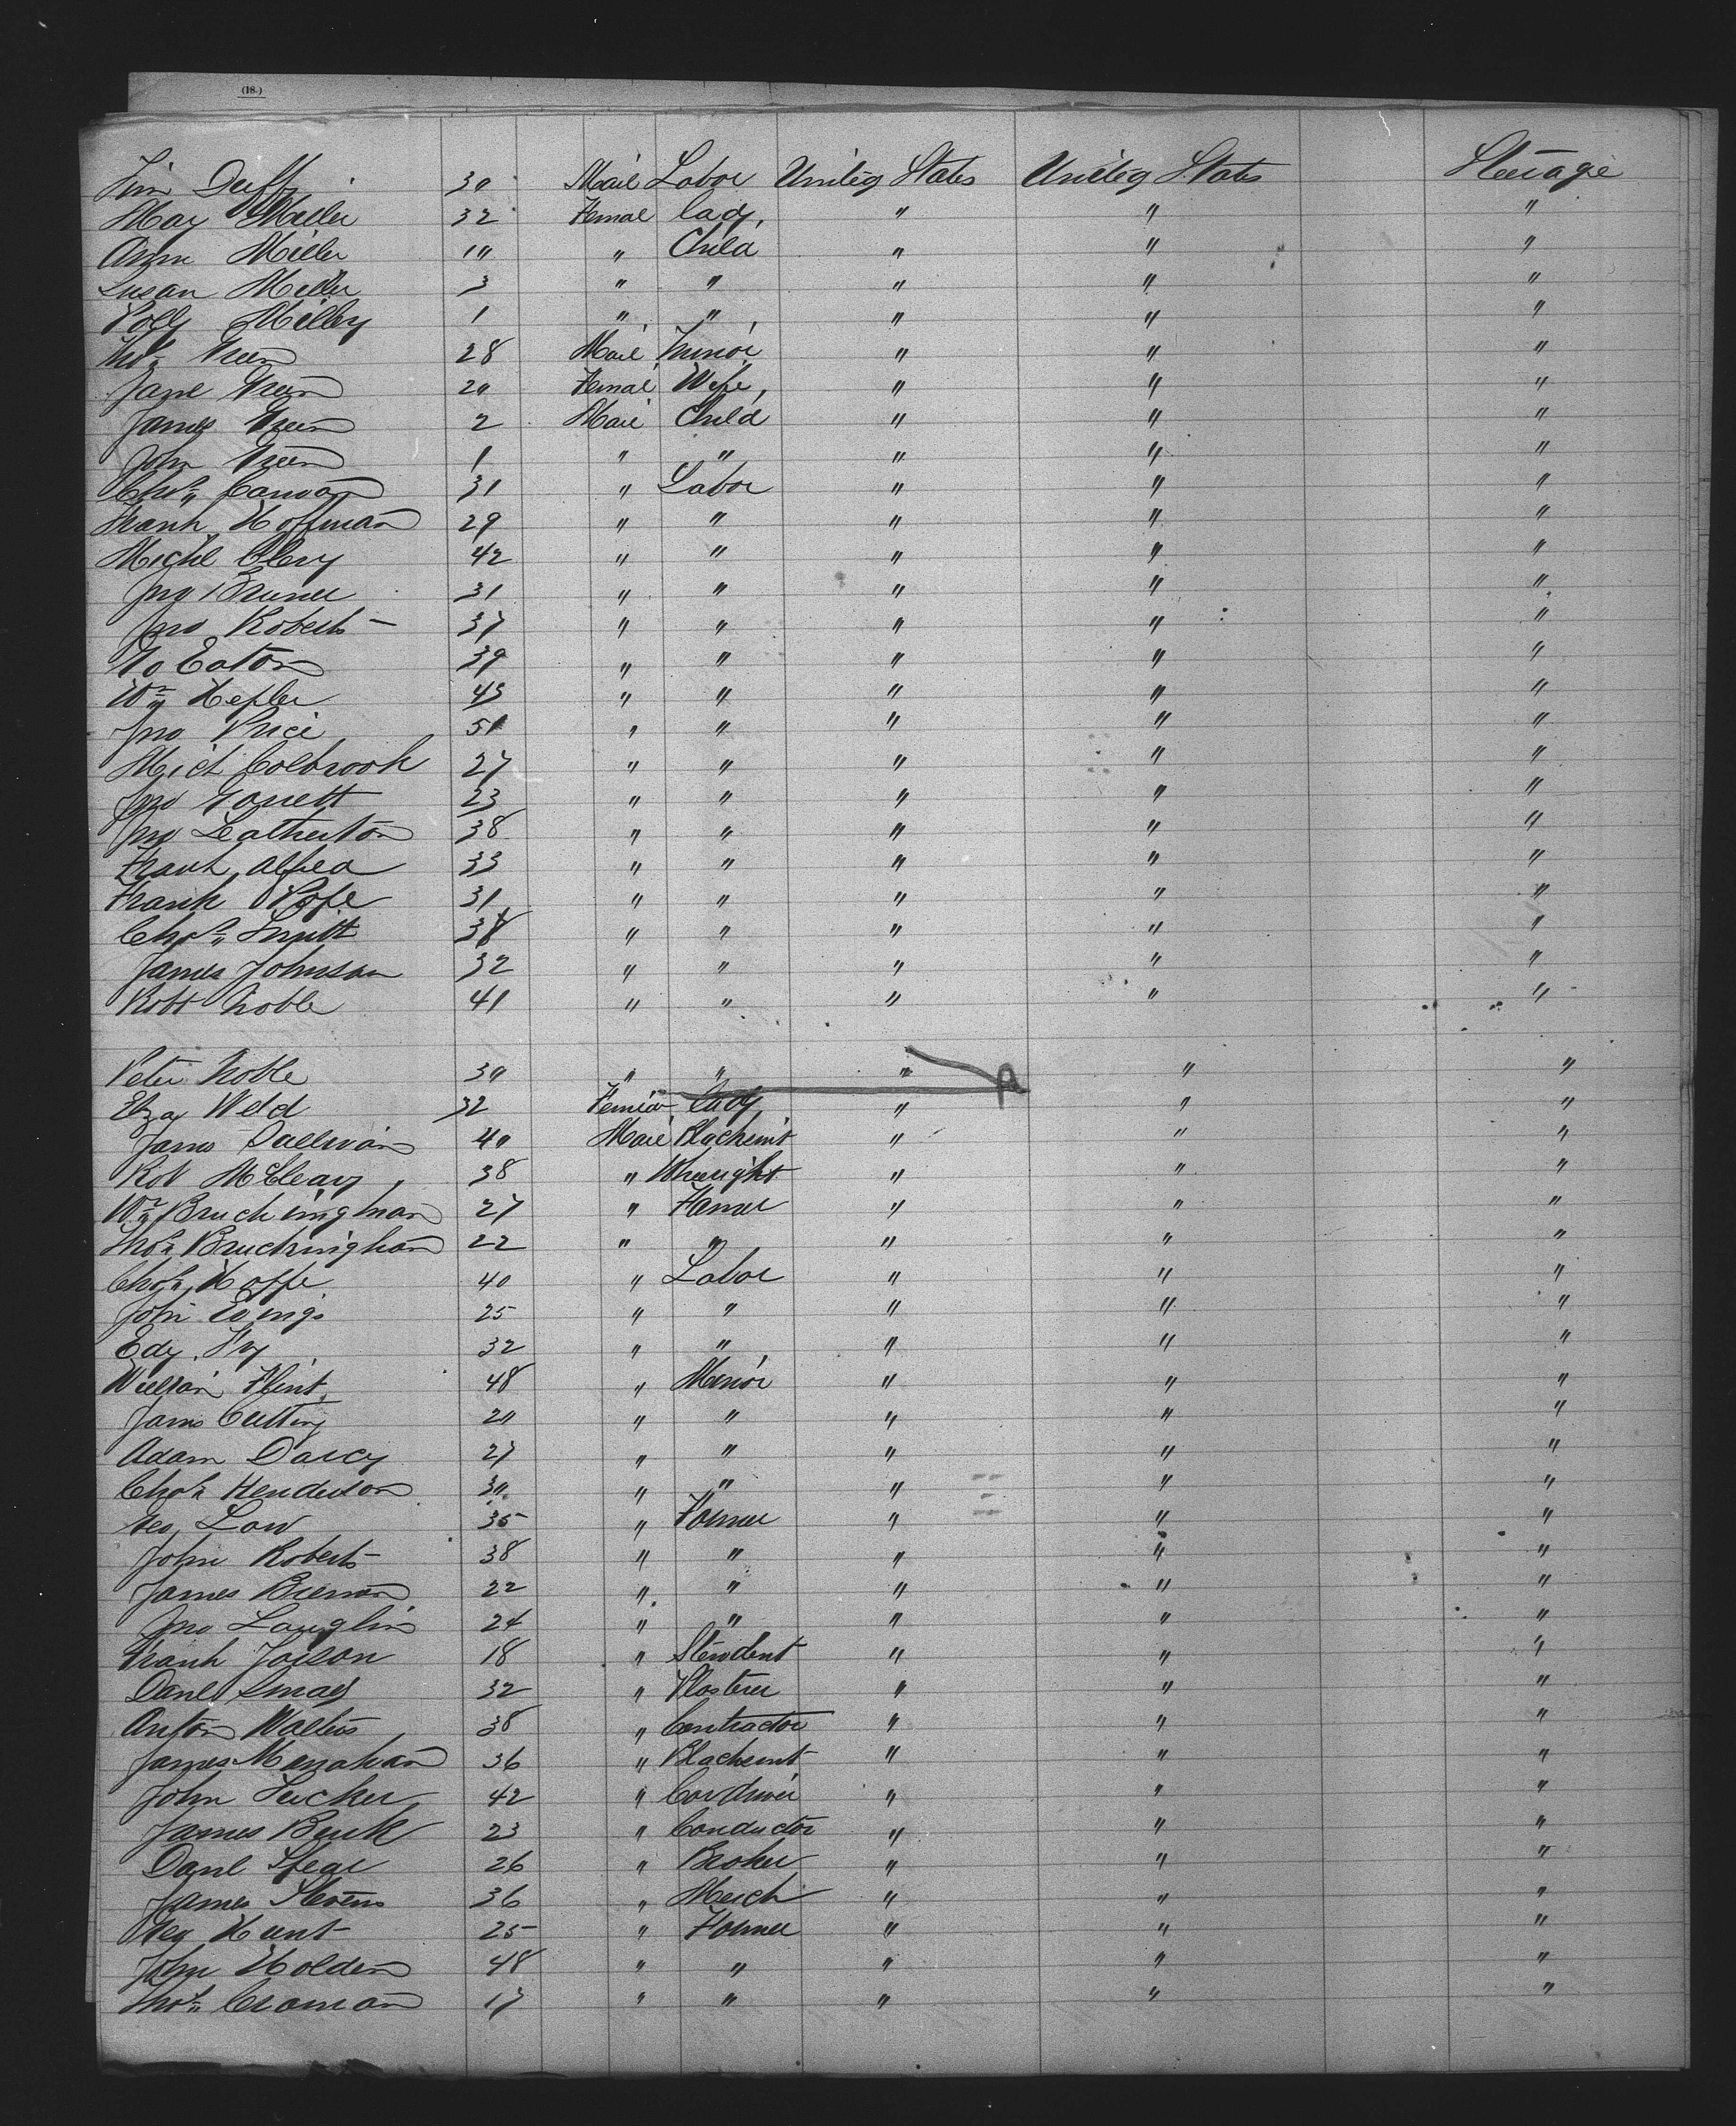 (18.)
Tim Duffy 30 Male Labor United States United States Steerage
May Miller 32 Femal lady, " " "
Ann Miller 10 " Child " " "
Susan Miller 3 " " " " "
Polly Miller 1 " " " " "
Thos Green 28 Male Minor " " "
Jane Green 20 Femal Wife, " " "
James Green 2 Male Child " " "
John Green 1 " " " " "
Chas 31 " Labor " " "
Frank Hoffman 29 " " " " "
Michl Clery 42 " " " " "
Jno Bruner 31 " " " " "
Jno Roberts 37 " " " " "
Eaton 39 " " " " "
Wm Hepler 43 " " " " "
Jno Price 51 " " " " "
Mich Colbrook 27 " " " " "
Jno Garrett 23 " " " " "
Jno Leatherton 38 " " " " "
Frank Alfea 33 " " " " "
Frank Pope 31 " " " " "
Chas Smitt 38 " " " " "
James Johnson 32 " " " " "
Robt Noble 41 " " " " "
Peter Noble 30 " " " " "
Elza Weld 32 lady " " "
James Sullivan 40 Male Blacksmit " " "
Rob McCleary 38 " Wheright " " "
Wm Bruckingham 27 " Farmer " " "
Thos Bruckingham 22 " " " " "
Chas Hoffe 40 " Labor " " "
John Ewings 25 " " " " "
Edy Fry 32 " " " " "
William Flint 48 " Minor " " "
James Cutting 20 " " " " "
Adam Darcy 27 " " " " "
Chas Henderson 30 " " " " "
Geo Law 35 " Farmer " " "
John Roberts 38 " " " " "
James Brennan 22 " " " " "
Jno Lauglin 24 " " " " "
Frank Joison 18 " Student " " "
Danl Smaly 32 " Plasterer " " "
Anton Walters 38 " Contractor " " "
James Manahan 36 " Blacksmit " " "
John Tucker 42 " Car driver " " "
James Burk 23 " Conductor " " "
Danl 26 " Broker " " "
James Stevens 36 " Merch " " "
Geo Hunt 25 " Farmer " " "
John Holden 48 " " " " "
Thos Croman 17 " " " " "